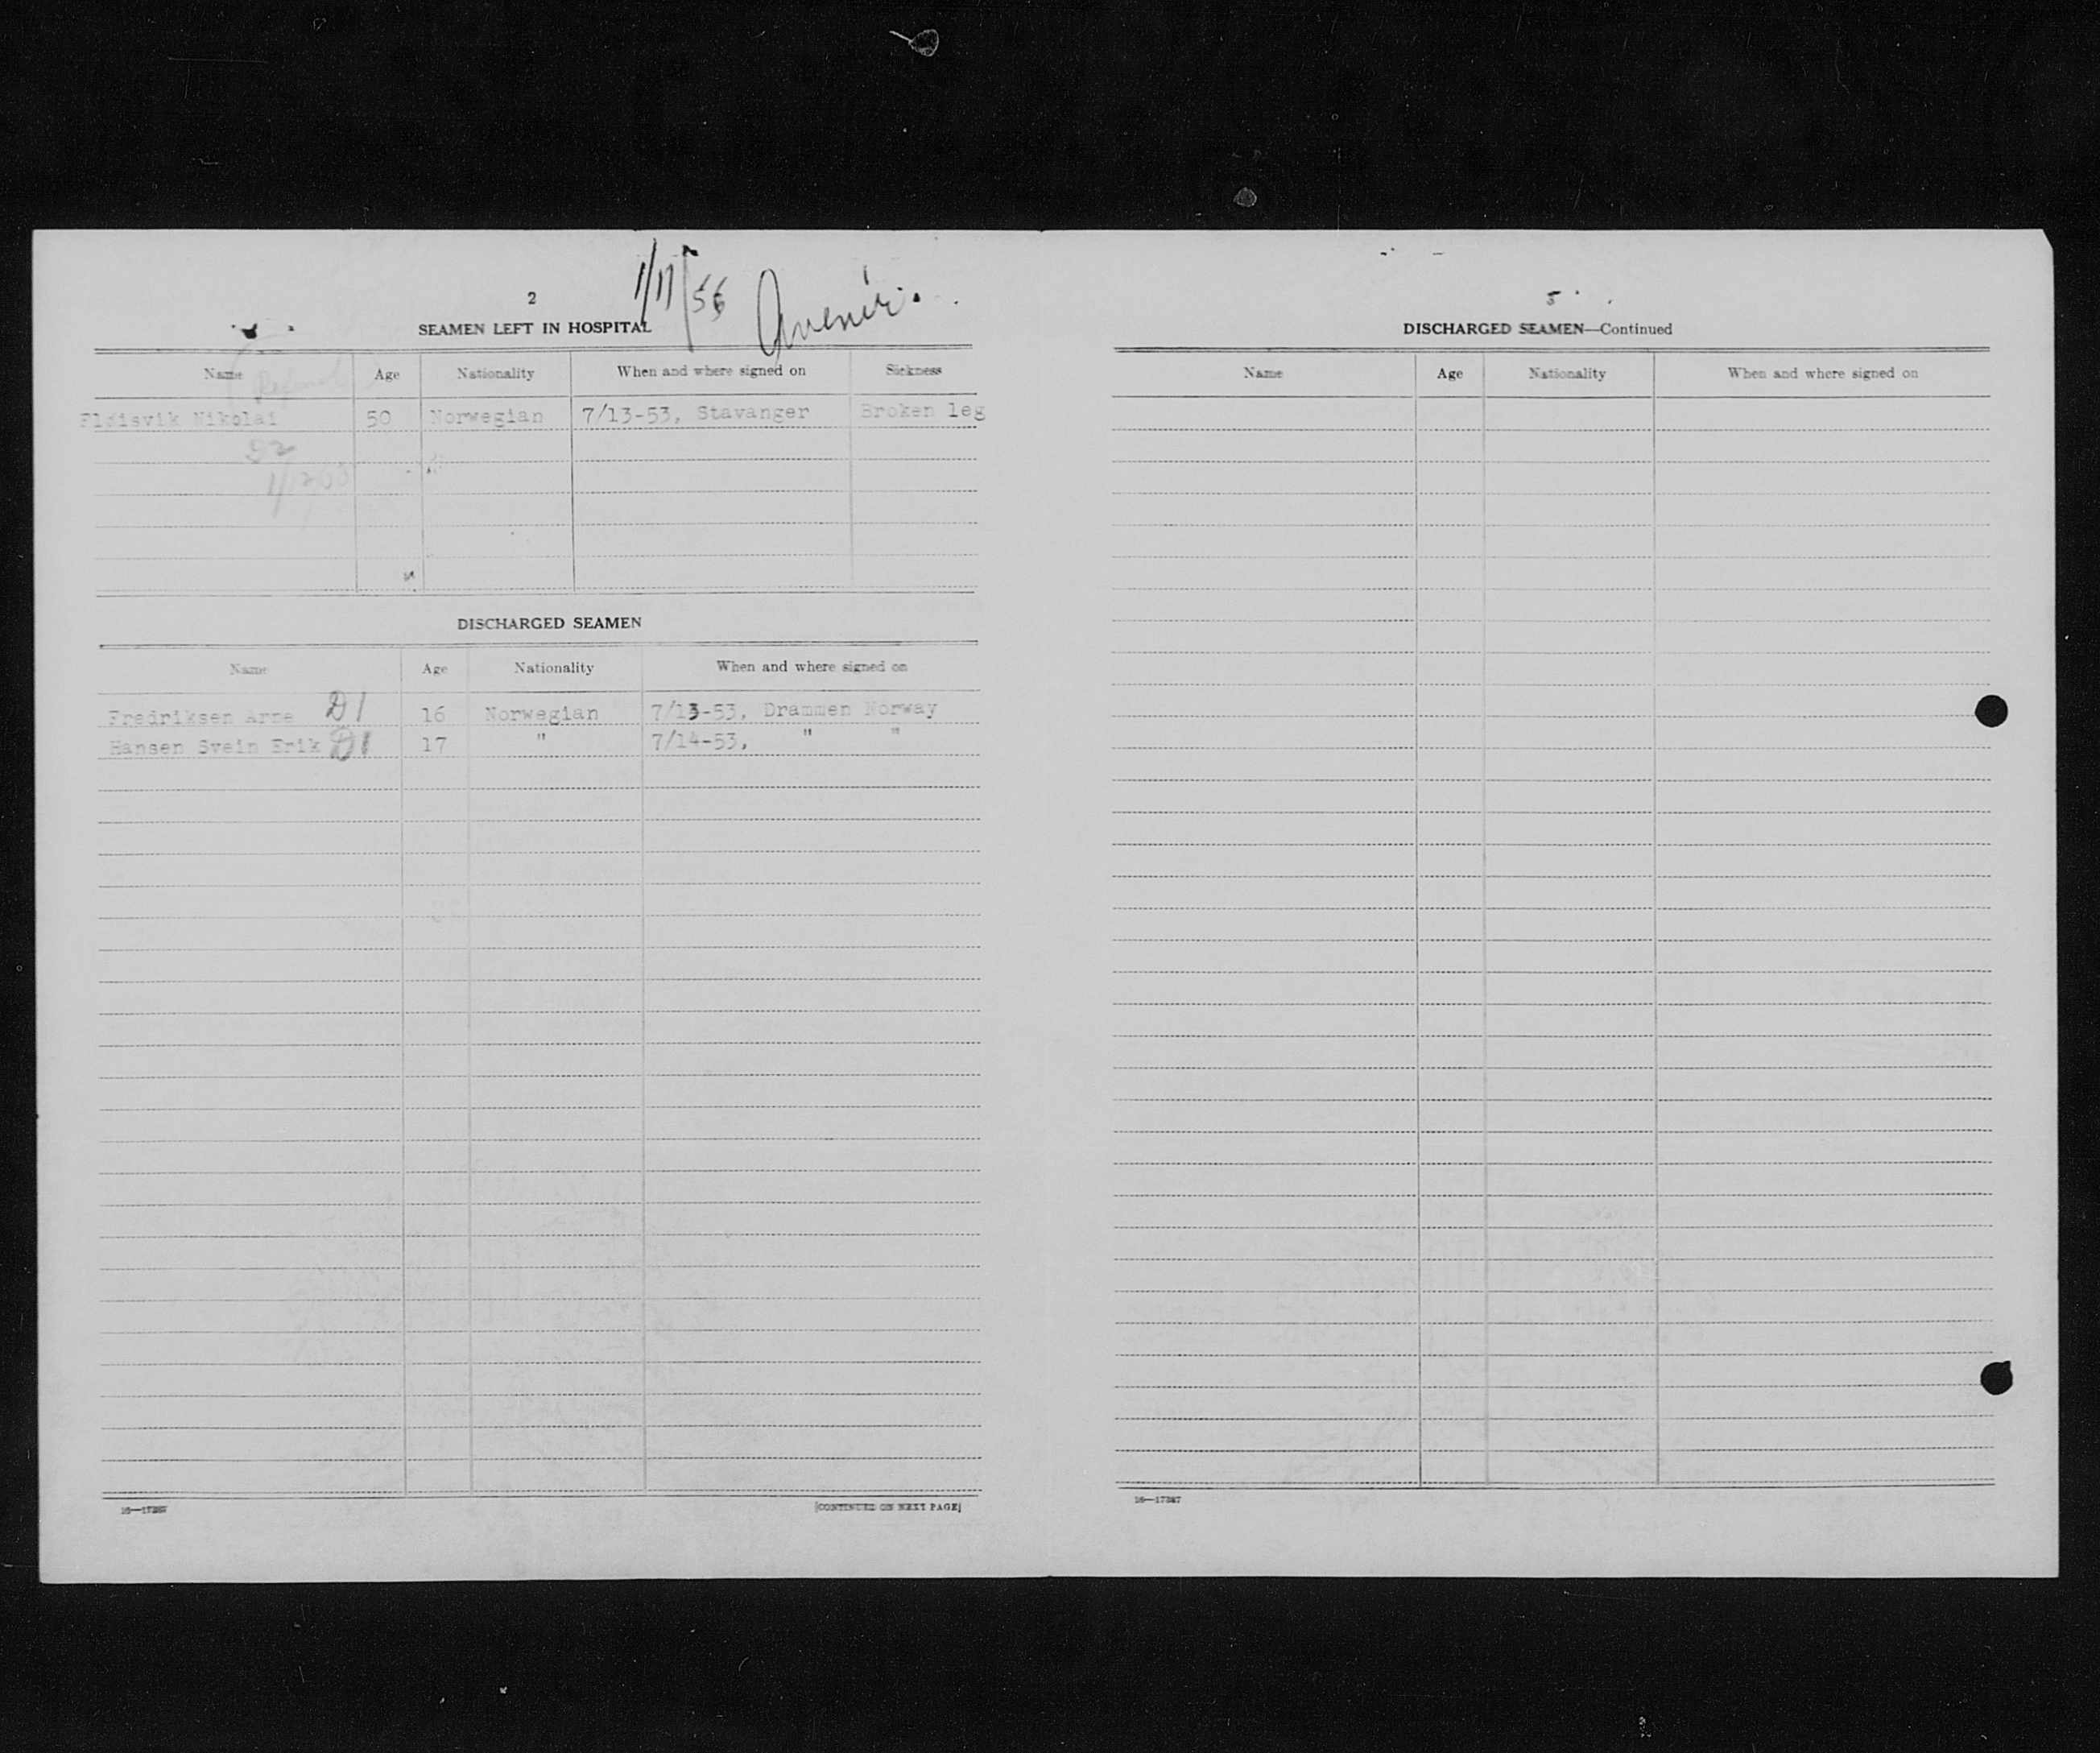 2
1/11/56 Avenir.
SEAMEN LEFT IN HOSPITAL
Name Age Nationality When and where signed on Sickness
Nikolai 50 Norwegian 7/13-53, Stavanger Broken leg
DISCHARGED SEAMEN
Name Age Nationality When and where signed on
Fredriksen Arne D1 16 Norwegian 7/13-53, Drammen Norway
Hansen Svein Erik D1 17 " 7/14-53, " "
16—17387 [CONTINUED ON NEXT PAGE]
DISCHARGED SEAMEN—Continued
Name Age Nationality When and where signed on
16—17387